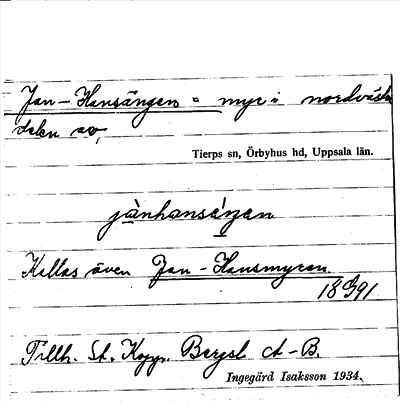 Jan-Hansängen = myr i nordvästra
delen av,
Tierps sn, Örbyhus hd, Uppsala län.
jànhansäŋen
Kallas även Jan-Hansmyren.
18 91
Tillh. St. Kopp. Bergsl. A-B.
Ingegärd Isaksson 1934.